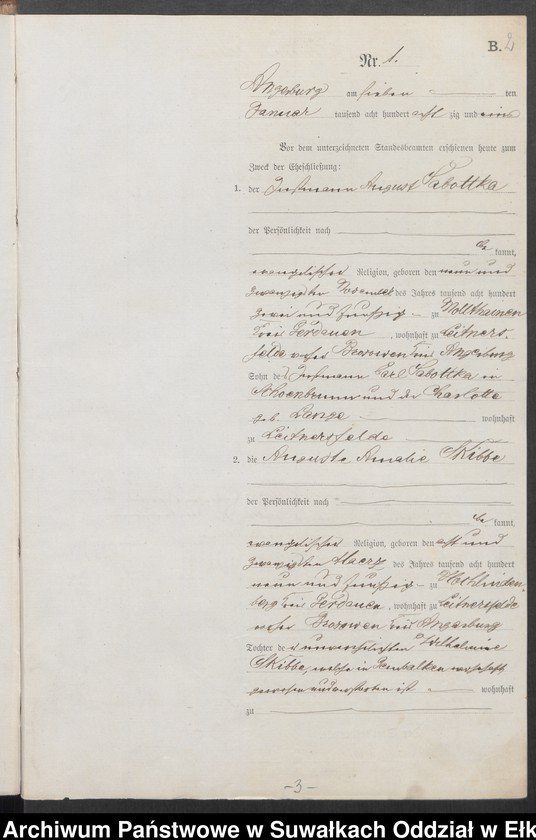 B. 2
Nr. 1.
Angerburg am sieben ten
Januar tausend acht hundert acht zig und eins
Vor dem unterzeichneten Standesbeamten erschienen heute zum
Zweck der Eheschließung:
1. der Instmann August Sabottka
der Persönlichkeit nach
be kannt,
evangelischer Religion, geboren den neun und
zwanzigsten November des Jahres tausend acht hundert
zwei und fünfzig zu
Kreis Gerdauen, wohnhaft zu Leitners-
felde Kreis Angerburg
Sohn des Instmann Carl Sabottka in
Schoenbrunn und der Charlotte
geb. Lange wohnhaft
zu Leitnersfelde
2. die Auguste Amalie Skibbe
der Persönlichkeit nach
be kannt,
evangelischer Religion, geboren den acht und
zwanzigsten Maerz des Jahres tausend acht hundert
neun und fünfzig zu
Kreis Gerdauen, wohnhaft zu Leitnersfelde
Kreis Angerburg
Tochter der unverehelichten Wilhelmine
Skibbe, welche in wohnhaft
gewesen und verstorben ist wohnhaft
zu
-3-
Archiwum Państwowe w Suwałkach Oddział w Ełk